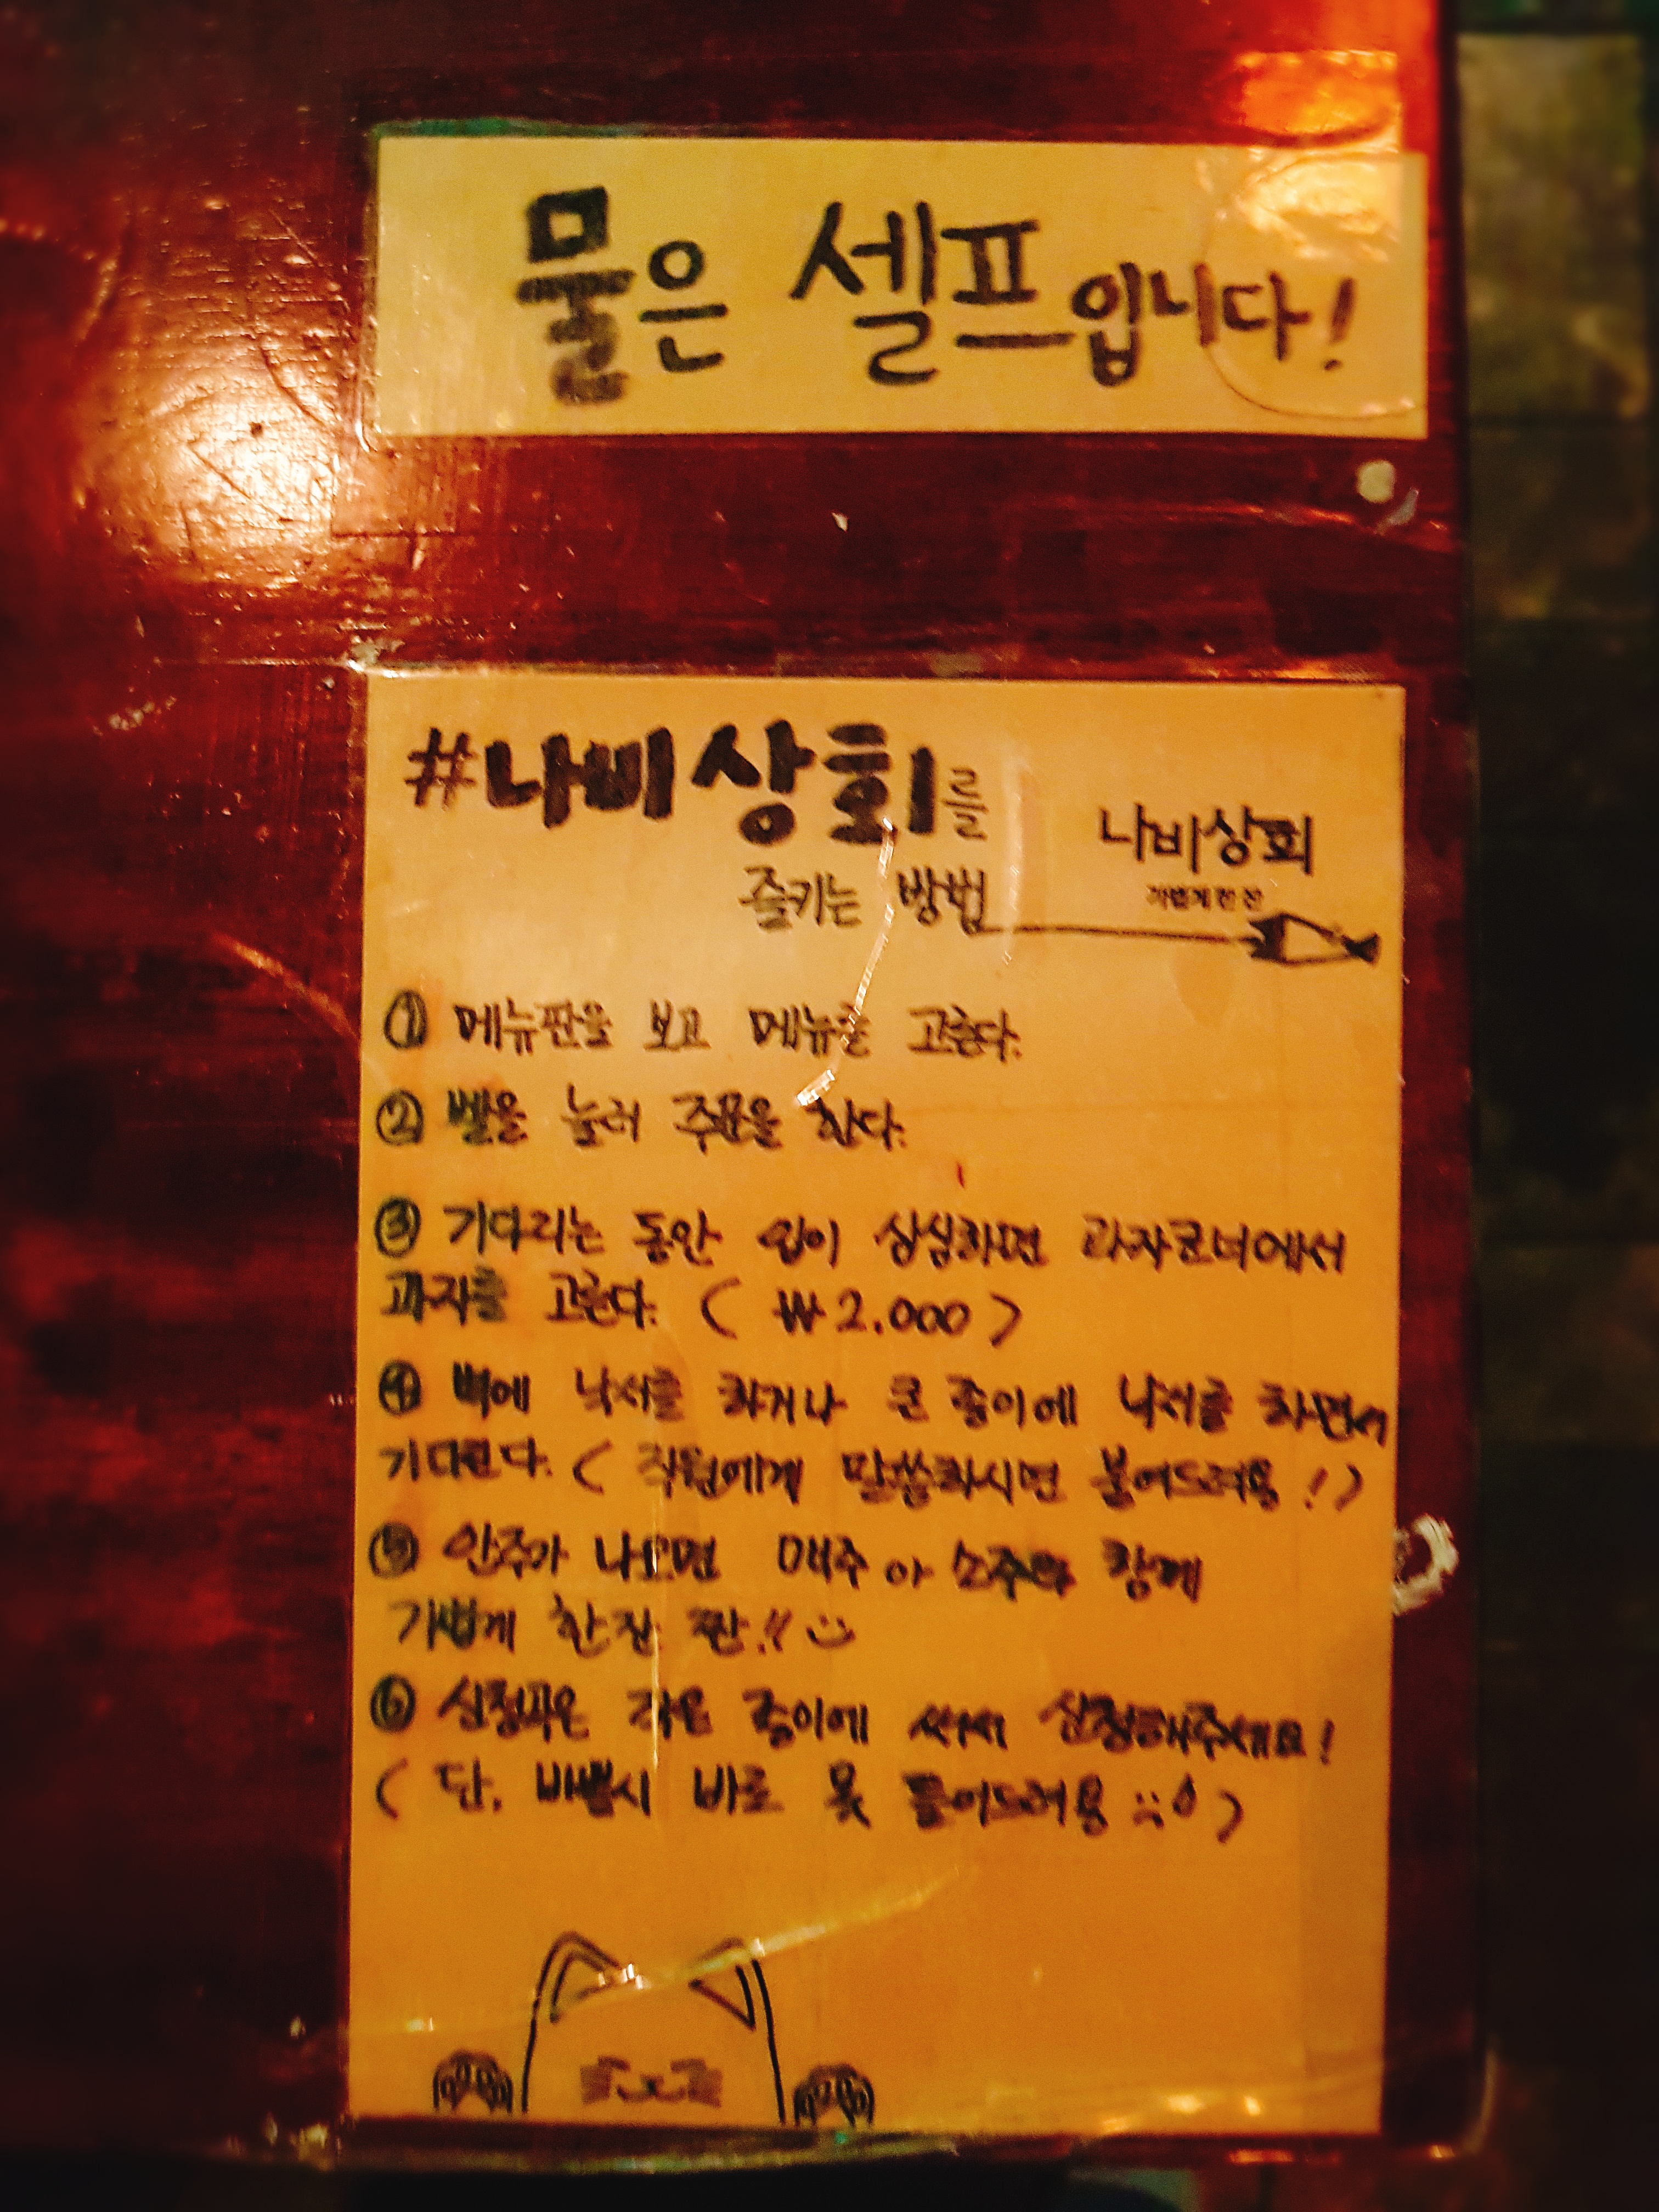 물은 셀프입니다!
#나비상회를
즐기는 방법
나비상회
가볍게 한 잔
① 메뉴판을 보고 메뉴를 고른다.
② 벨을 눌러 주문을 한다.
③ 기다리는 동안 입이 심심하면 과자코너에서
과자를 고른다. ( ₩2.000 )
④ 벽에 낙서를 하거나 큰 종이에 낙서를 하면서
기다린다. ( 직원에게 말씀하시면 붙여드려용! )
⑤ 안주가 나오면 맥주아 소주와 함께
가볍게 한잔 짠!!
⑥ 신청곡은 작은 종이에 써서 신청해주세요!
( 단, 바쁠시 바로 못 틀어드려용 )